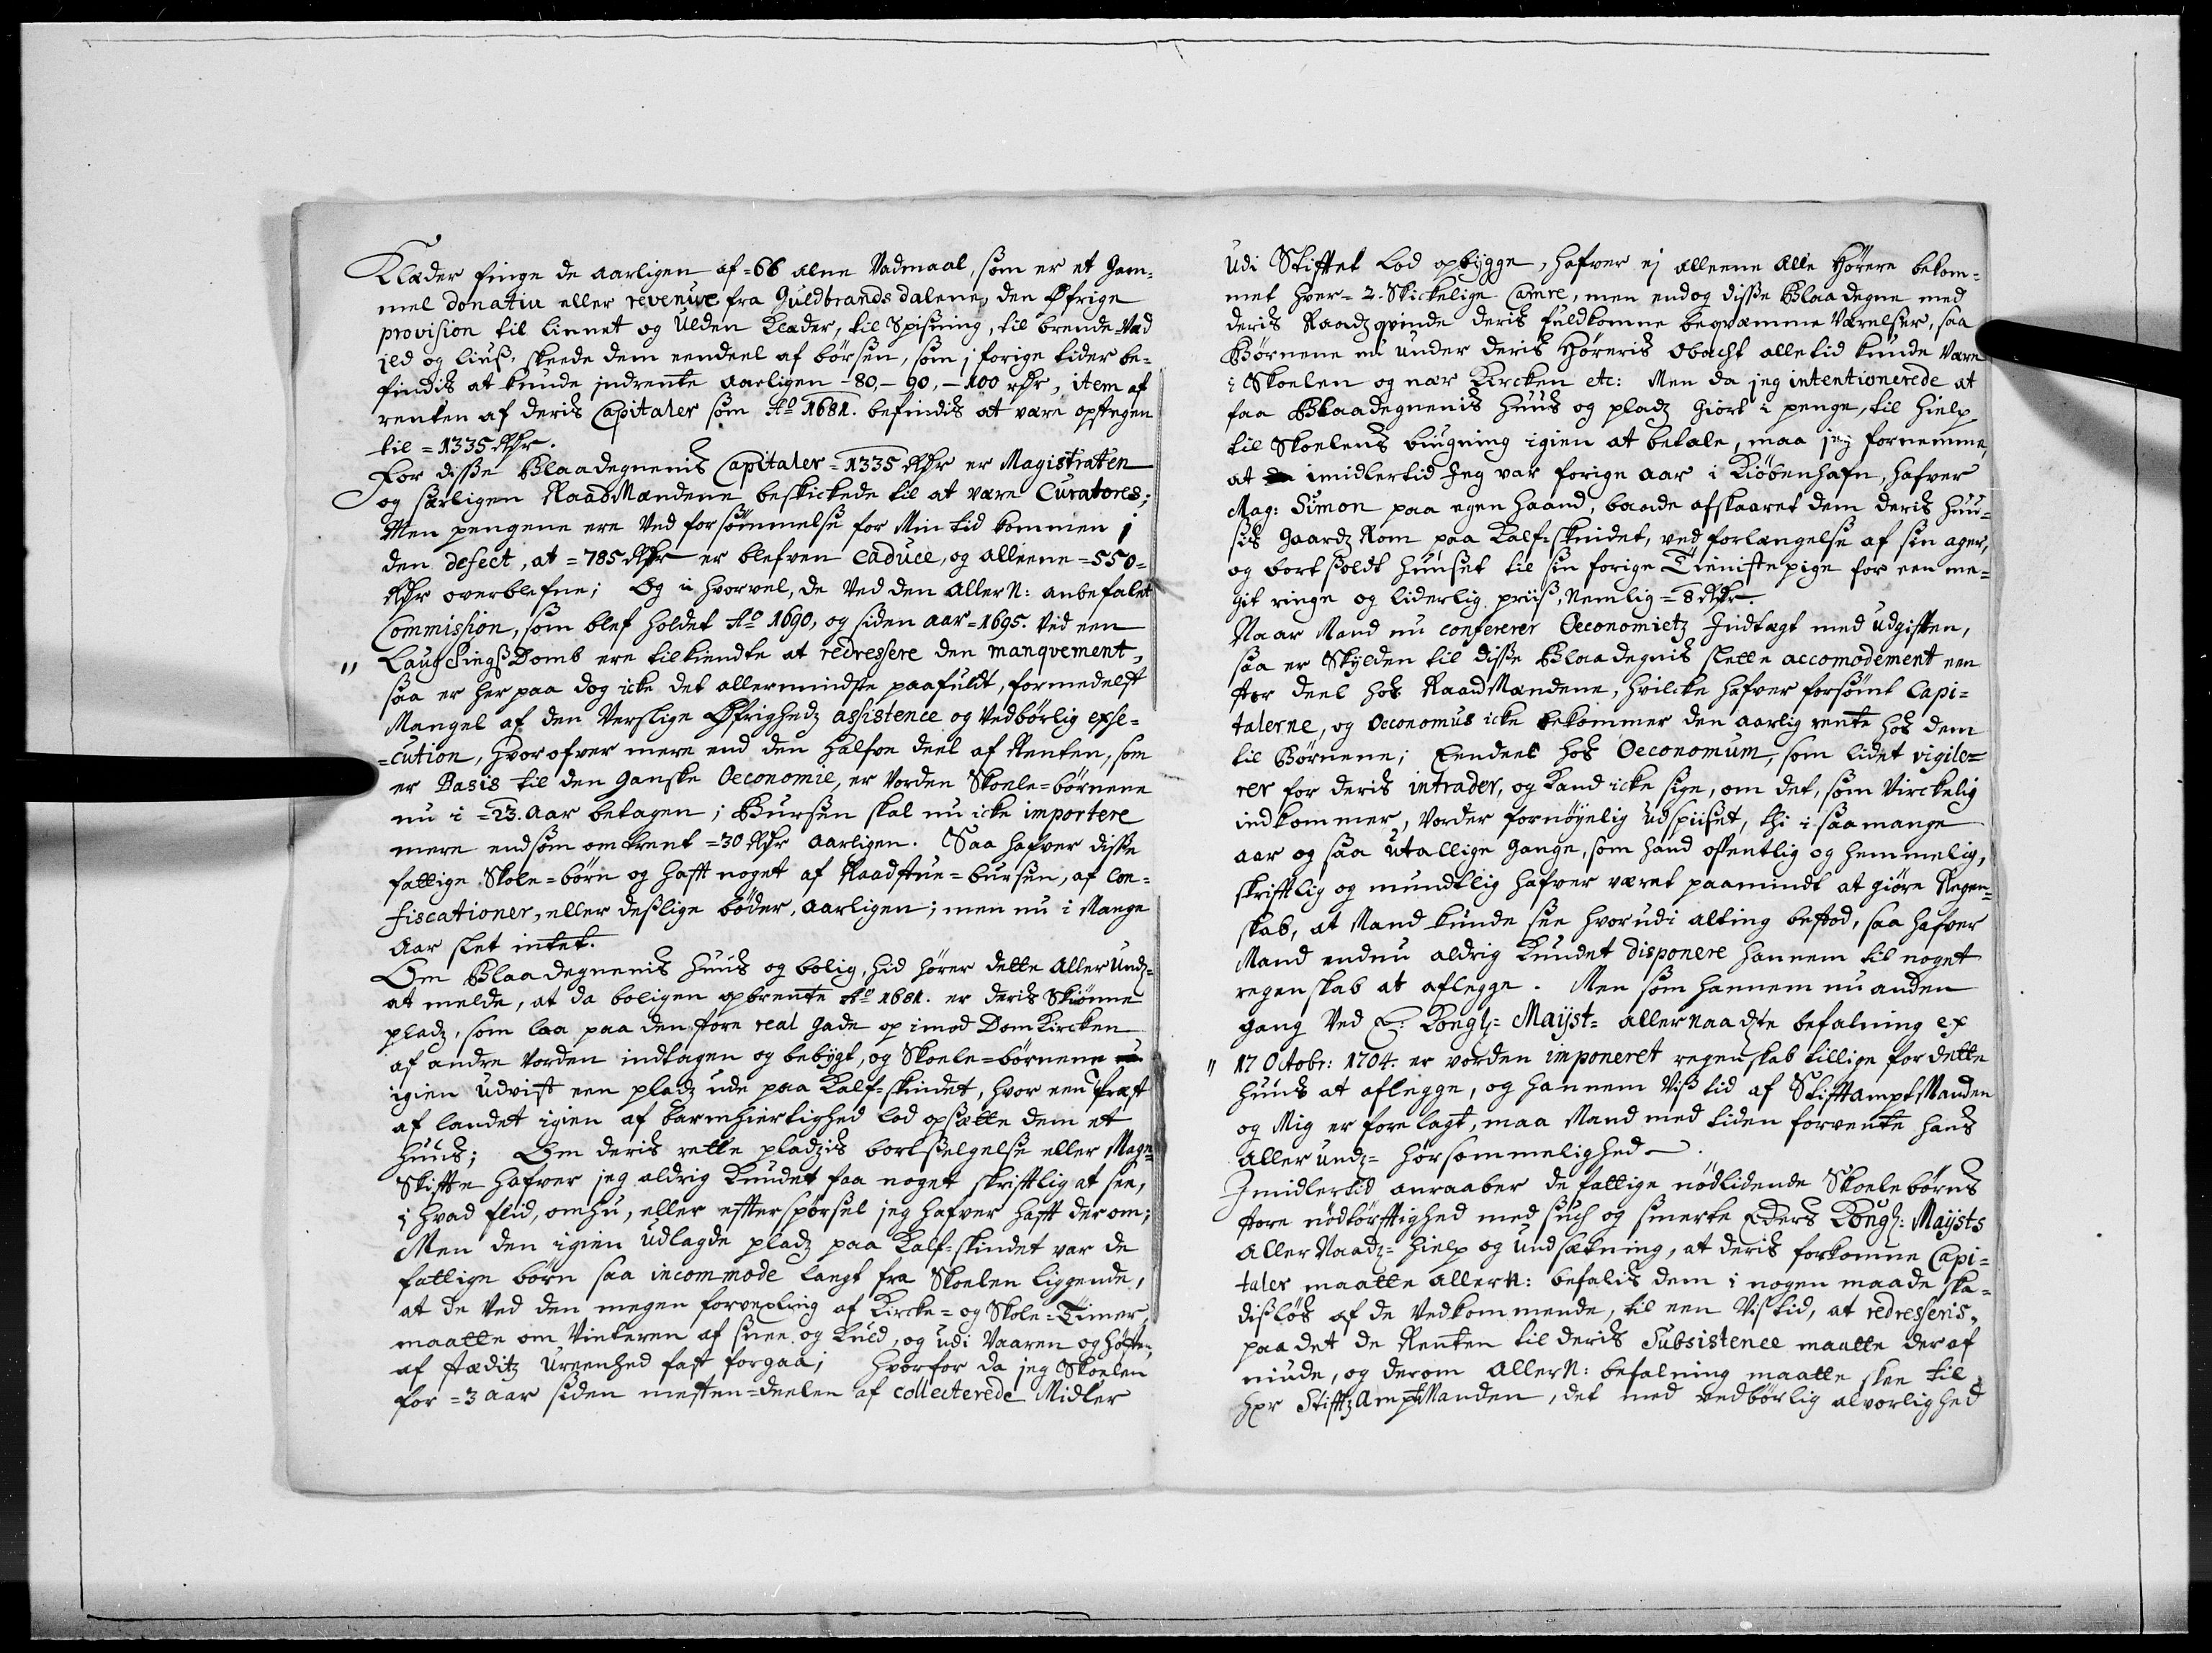 Klæder finge de aarligen af =66 alne Vadmaal, som er et gam-
mel donativ eller revenue fra Guldbrandsdalene, den Øfrige
provision til linnet og Ulden Klæder, til Spisning, til brende-Ved
ild og liuß, skeede dem eendeel af børsen, som i forige tider be-
findis at kunde indrente aarligen -80,- 90,- 100 rdr, item af
renten af deris Capitaler som Ao 1681. befindis at være opstegen
til =1335 Rdr.
For disse Blaadegnenis Capitaler =1335 Rdr er Magistraten
og særligen RaadMændene beskickede til at være Curatores;
Men pengene ere Ved forsømmelse for Min tid kommen i
den defect, at =785 Rdr er blefven caduce, og alleene =550=
Rdr overblefne; Og i hvorvel, de Ved den Aller N: anbefalet
Commission, som blef holdet Ao 1690, og siden aar =1695. Ved een
" LaugtingsDomb ere tilkiendte at redressere den manqvement,
saa er her paa dog icke det allermindste paafuldt, formedelst
Mangel af den Verslige Øfrighedz assistence og Vedbørlig exse-
=cution, hvorofver mere end den halfve deel af Renten, som
er Basis til den ganske Oeconomie, er vorden Skoele-børnene
nu i =23. aar betagen; Bursen skal nu icke importere
mere endsom omtrent =30 Rdr aarligen. Saa hafver disse
fattige Skole-børn og hafft noget af Raadstue-bursen, af Con-
fiscationer, eller deslige bøder, aarligen; men nu i Mange
Aar slet intet.
Om Blaadegnenis huus og bolig, hid hører dette AllerUndz=
at melde, at da boligen opbrente Ao 1681. er deris Skiønne
pladz, som laa paa den store real gade op imod DomKircken
af andre vorden indtagen og bebygt, og Skoele-børnene
igien udvist een pladz ude paa Kalf-skindet, hvor een Præst
af landet igien af barmhiertighed lod opsætte dem et
huus; Om deris rette pladzis bortselgelse eller Mage=
Skiffte hafver jeg aldrig kundet faa noget skrifftlig at see,
i hvad flid, omhu, eller effterspørsel jeg hafver hafft derom;
Men den igien udlagde pladz paa Kalf-skindet var de
fattige børn saa incommode langt fra Skoelen liggende,
at de Ved den megen forvexling af Kircke- og Skole-Timer,
maatte om Vinteren af snee og Kuld, og udi Vaaren og høsten,
af stæditz Ureenhed fast forgaa; hvorfor da jeg Skoelen
for =3 aar siden mesten-deelen af collecterede Midler
Udi Stifftet lod opbygge, hafver ej alleene Alle Hørere bekom-
met hver= 2. Skickelige Camre, men endog disse Blaadegne med
deris Raadzqvinde deris fuldkomne beqvæmme Værelser, saa
Børnene nu under deris Høreris Obacht alletid kunde være
i Skoelen og nær Kircken etc: Men da jeg intentionerede at
faa Blaadegnenis huus og pladz giort i penge, til hielp
til Skoelens bugning igien at betale, maa jeg fornemme,
at imidlertid Jeg var forige aar i Kiøbenhafn, hafver
Mag: Simon paa egen haand, baade afskaaret dem deris huu-
sis gaardz Rom paa Kalf-skindet, ved forlængelse af sin ager,
og bortsoldt huuset til sin forige Tienistepige for een me-
git ringe og liderlig priis, Nemlig =8 Rdr.
Naar Mand nu confererer Oeconomietz Indtægt med udgifften,
saa er Skylden til disse Blaadegnis slette accomodement een
stor deel hos RaadMændene, hvilcke hafver forsømt Capi-
talerne, og Oeconomus icke bekommer den aarlig rente hos dem
til Børnene; Eendeel hos Oeconomum, som lidet vigile-
rer for deris intrader, og Kand icke sige, om det, som Virckelig
indkommer, vorder fornøyelig udspiiset, thi i saa mange
aar og saa utallige gange, som hand offentlig og hemmelig,
skrifftlig og mundtlig hafver været paamindt at giøre Regen-
skab, at Mand kunde see hvorudi alting bestod, saa hafver
Mand endnu aldrig kundet disponere hannem til noget
regenskab at aflegge. Men som hannem nu anden
gang Ved E: Kongl: Mayst= allernaadste befalning ex
" 17 Octobr: 1704. er vorden imponeret regenskab tillige for dette
huus at aflegge, og hannem Vis tid af StifftamptManden
og Mig er forelagt, maa Mand med tiden forvente hans
allerundz= hørsommelighed.
Imidlertid anraaber de fattige nødlidende Skoelebørns
store nødtørfftighed med suck og smerte Eders Kongl: Maysts
AllerNaadz= hielp og undsætning, at deris forkomne Capi-
taler maatte AllerN: befalis dem i nogen maade ska-
disløs af de Vedkommende, til een Vis tid, at redresseris,
paa det de Renten til deris Subsistence maatte deraf
niude, og derom AllerN: befalning maatte skee til,
hr StifftzAmptManden, det med vedbørlig alvorlighed